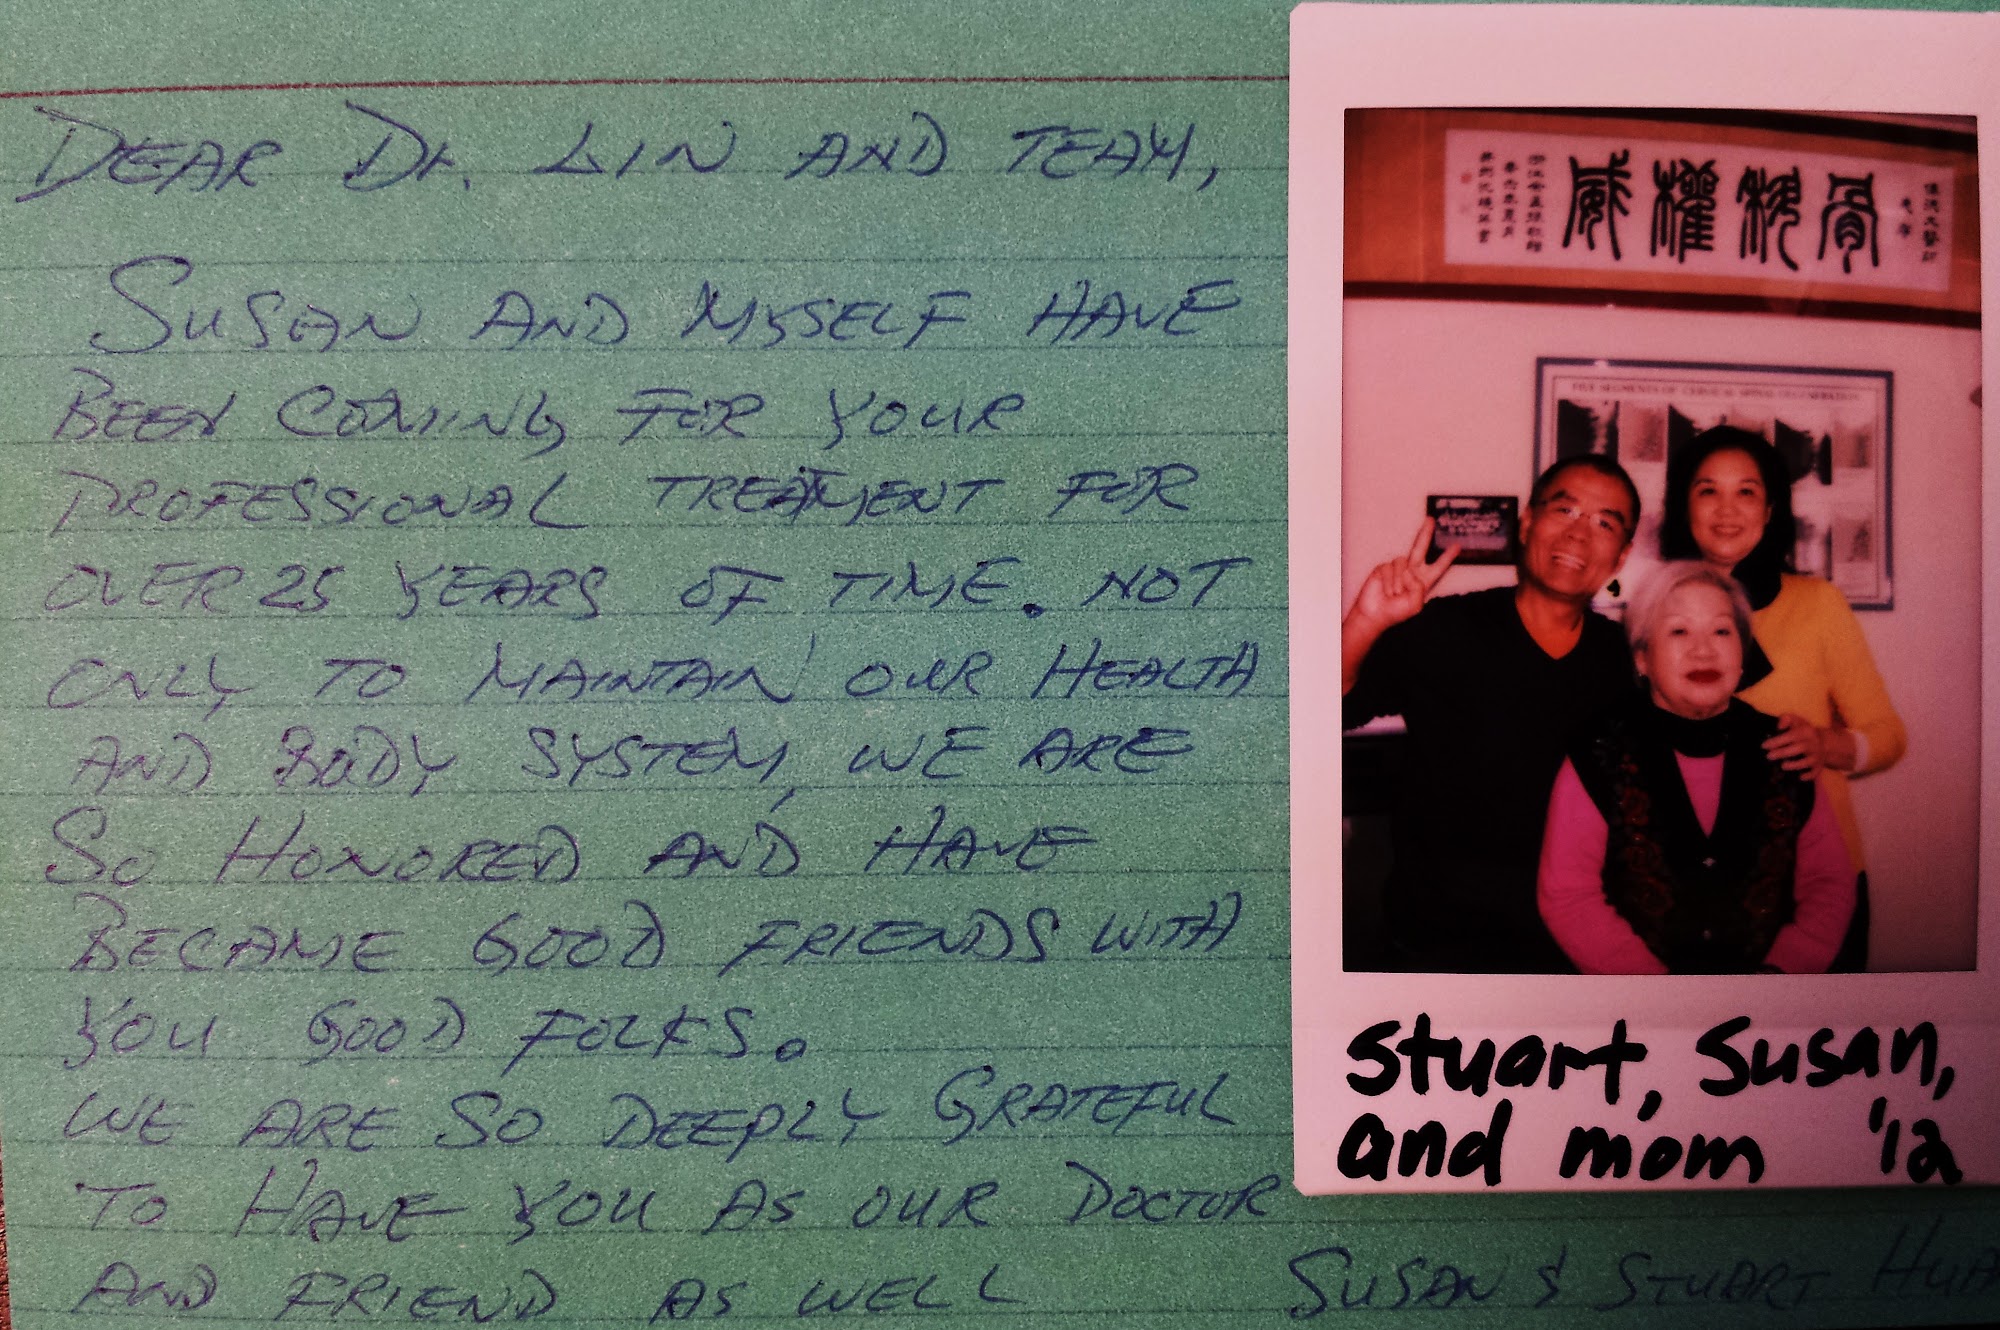 DEAR Dr. LIN AND TEAM,
SUSAN AND MYSELF HAVE
BEEN COMING FOR YOUR
PROFESSIONAL TREATMENT FOR
OVER 25 YEARS OF TIME. NOT
ONLY TO MAINTAIN OUR HEALTH
AND BODY SYSTEM, WE ARE
SO HONORED AND HAVE
BECAME GOOD FRIENDS WITH
YOU GOOD FOLKS.
WE ARE SO DEEPLY GRATEFUL
TO HAVE YOU AS OUR DOCTOR
AND FRIEND AS WELL
SUSAN & STUART
威權 骨
FIVE SEGMENTS OF CERVICAL SPINAL DEGENERATION
Stuart, Susan,
and mom '12